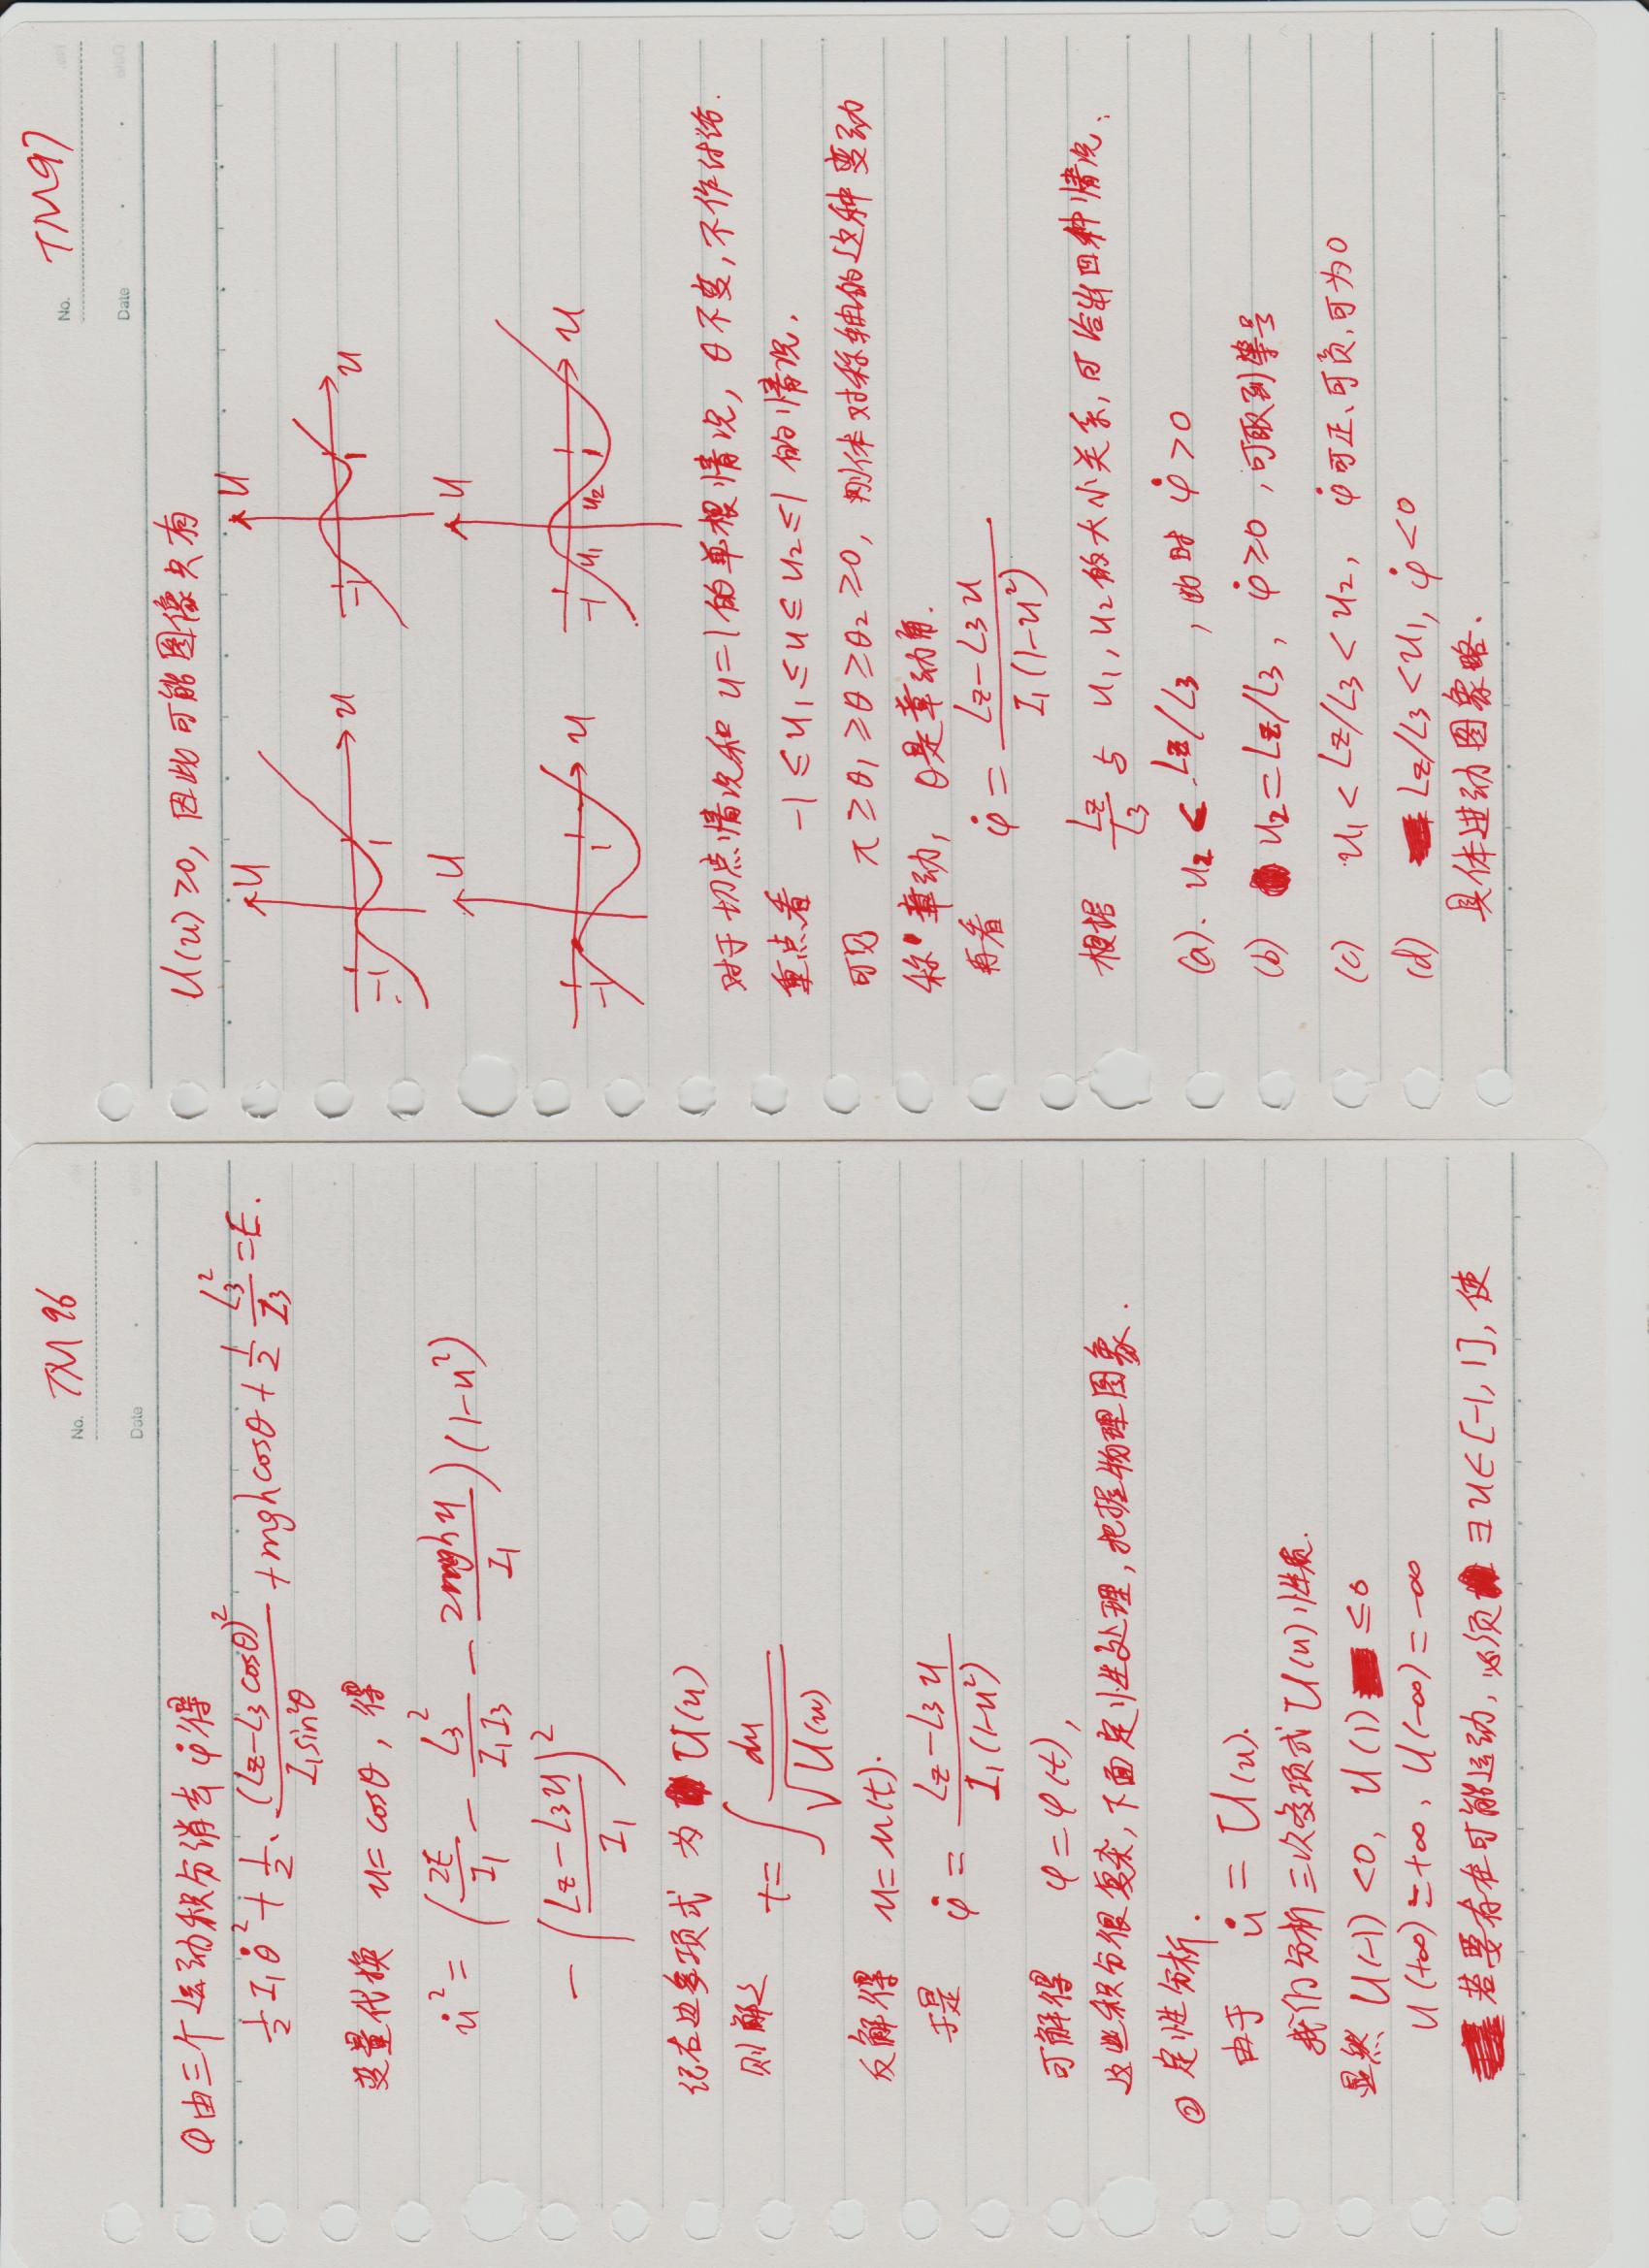 No. TM 96
Date
①由三个运动积分消去 φ̇ 得
½ I₁θ̇² + ½·(Lz−L₃cosθ)²/(I₁sin²θ) + mghcosθ + ½ L₃²/I₃ = E.
变量代换 u = cosθ, 得
u̇² = (2E/I₁ − L₃²/(I₁I₃) − 2mghu/I₁)(1−u²)
− ((Lz−L₃u)/I₁)²
记右边多项式 为 U(u)
则解之 t = ∫ du/√U(u)
反解得 u = u(t).
于是 φ̇ = (Lz−L₃u)/(I₁(1−u²))
可解得 φ = φ(t),
这些积分很复杂, 下面定性处理, 把握物理图象.
② 定性分析.
由于 u̇ = U(u).
我们分析三次多项式 U(u) 性质.
显然 U(−1) <0, U(1) ≤0
U(+∞) = +∞, U(−∞) = −∞
若要存在可能运动, 必须 ∃u∈[−1, 1], 使
No. TM97
Date
U(u) ≥0, 因此可能图像只有
U u −1 1
U u −1 1
U u −1 1
U u −1 u₁ u₂ 1
对于切点情况和 u=1 的单根情况, θ不变, 不作讨论.
重点看 −1 ≤ u₁ ≤ u ≤ u₂ ≤ 1 的情况.
可见 π ≥ θ₁ ≥ θ ≥ θ₂ ≥ 0, 刚体对称轴的这种变动
称 章动, θ是章动角.
再看 φ̇ = (Lz−L₃u)/(I₁(1−u²)).
根据 Lz/L₃ 与 u₁, u₂ 的大小关系, 可给出四种情况:
(a). u₂ < Lz/L₃, 此时 φ̇ > 0
(b) u₂ = Lz/L₃, φ̇ ≥ 0, 可取到等号
(c) u₁ < Lz/L₃ < u₂, φ̇ 可正、可负, 可为0
(d) Lz/L₃ < u₁, φ̇ < 0
具体进动图象略.